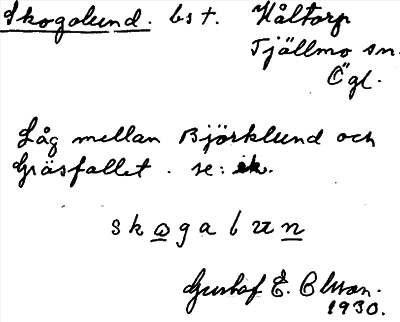 Skogalund. bst. Håltorp
Tjällmo sn.
Ögl.
Låg mellan Björklund och
Gräsfallet. se: ek.
skogalun
Gustaf E. Olsson.
1930.